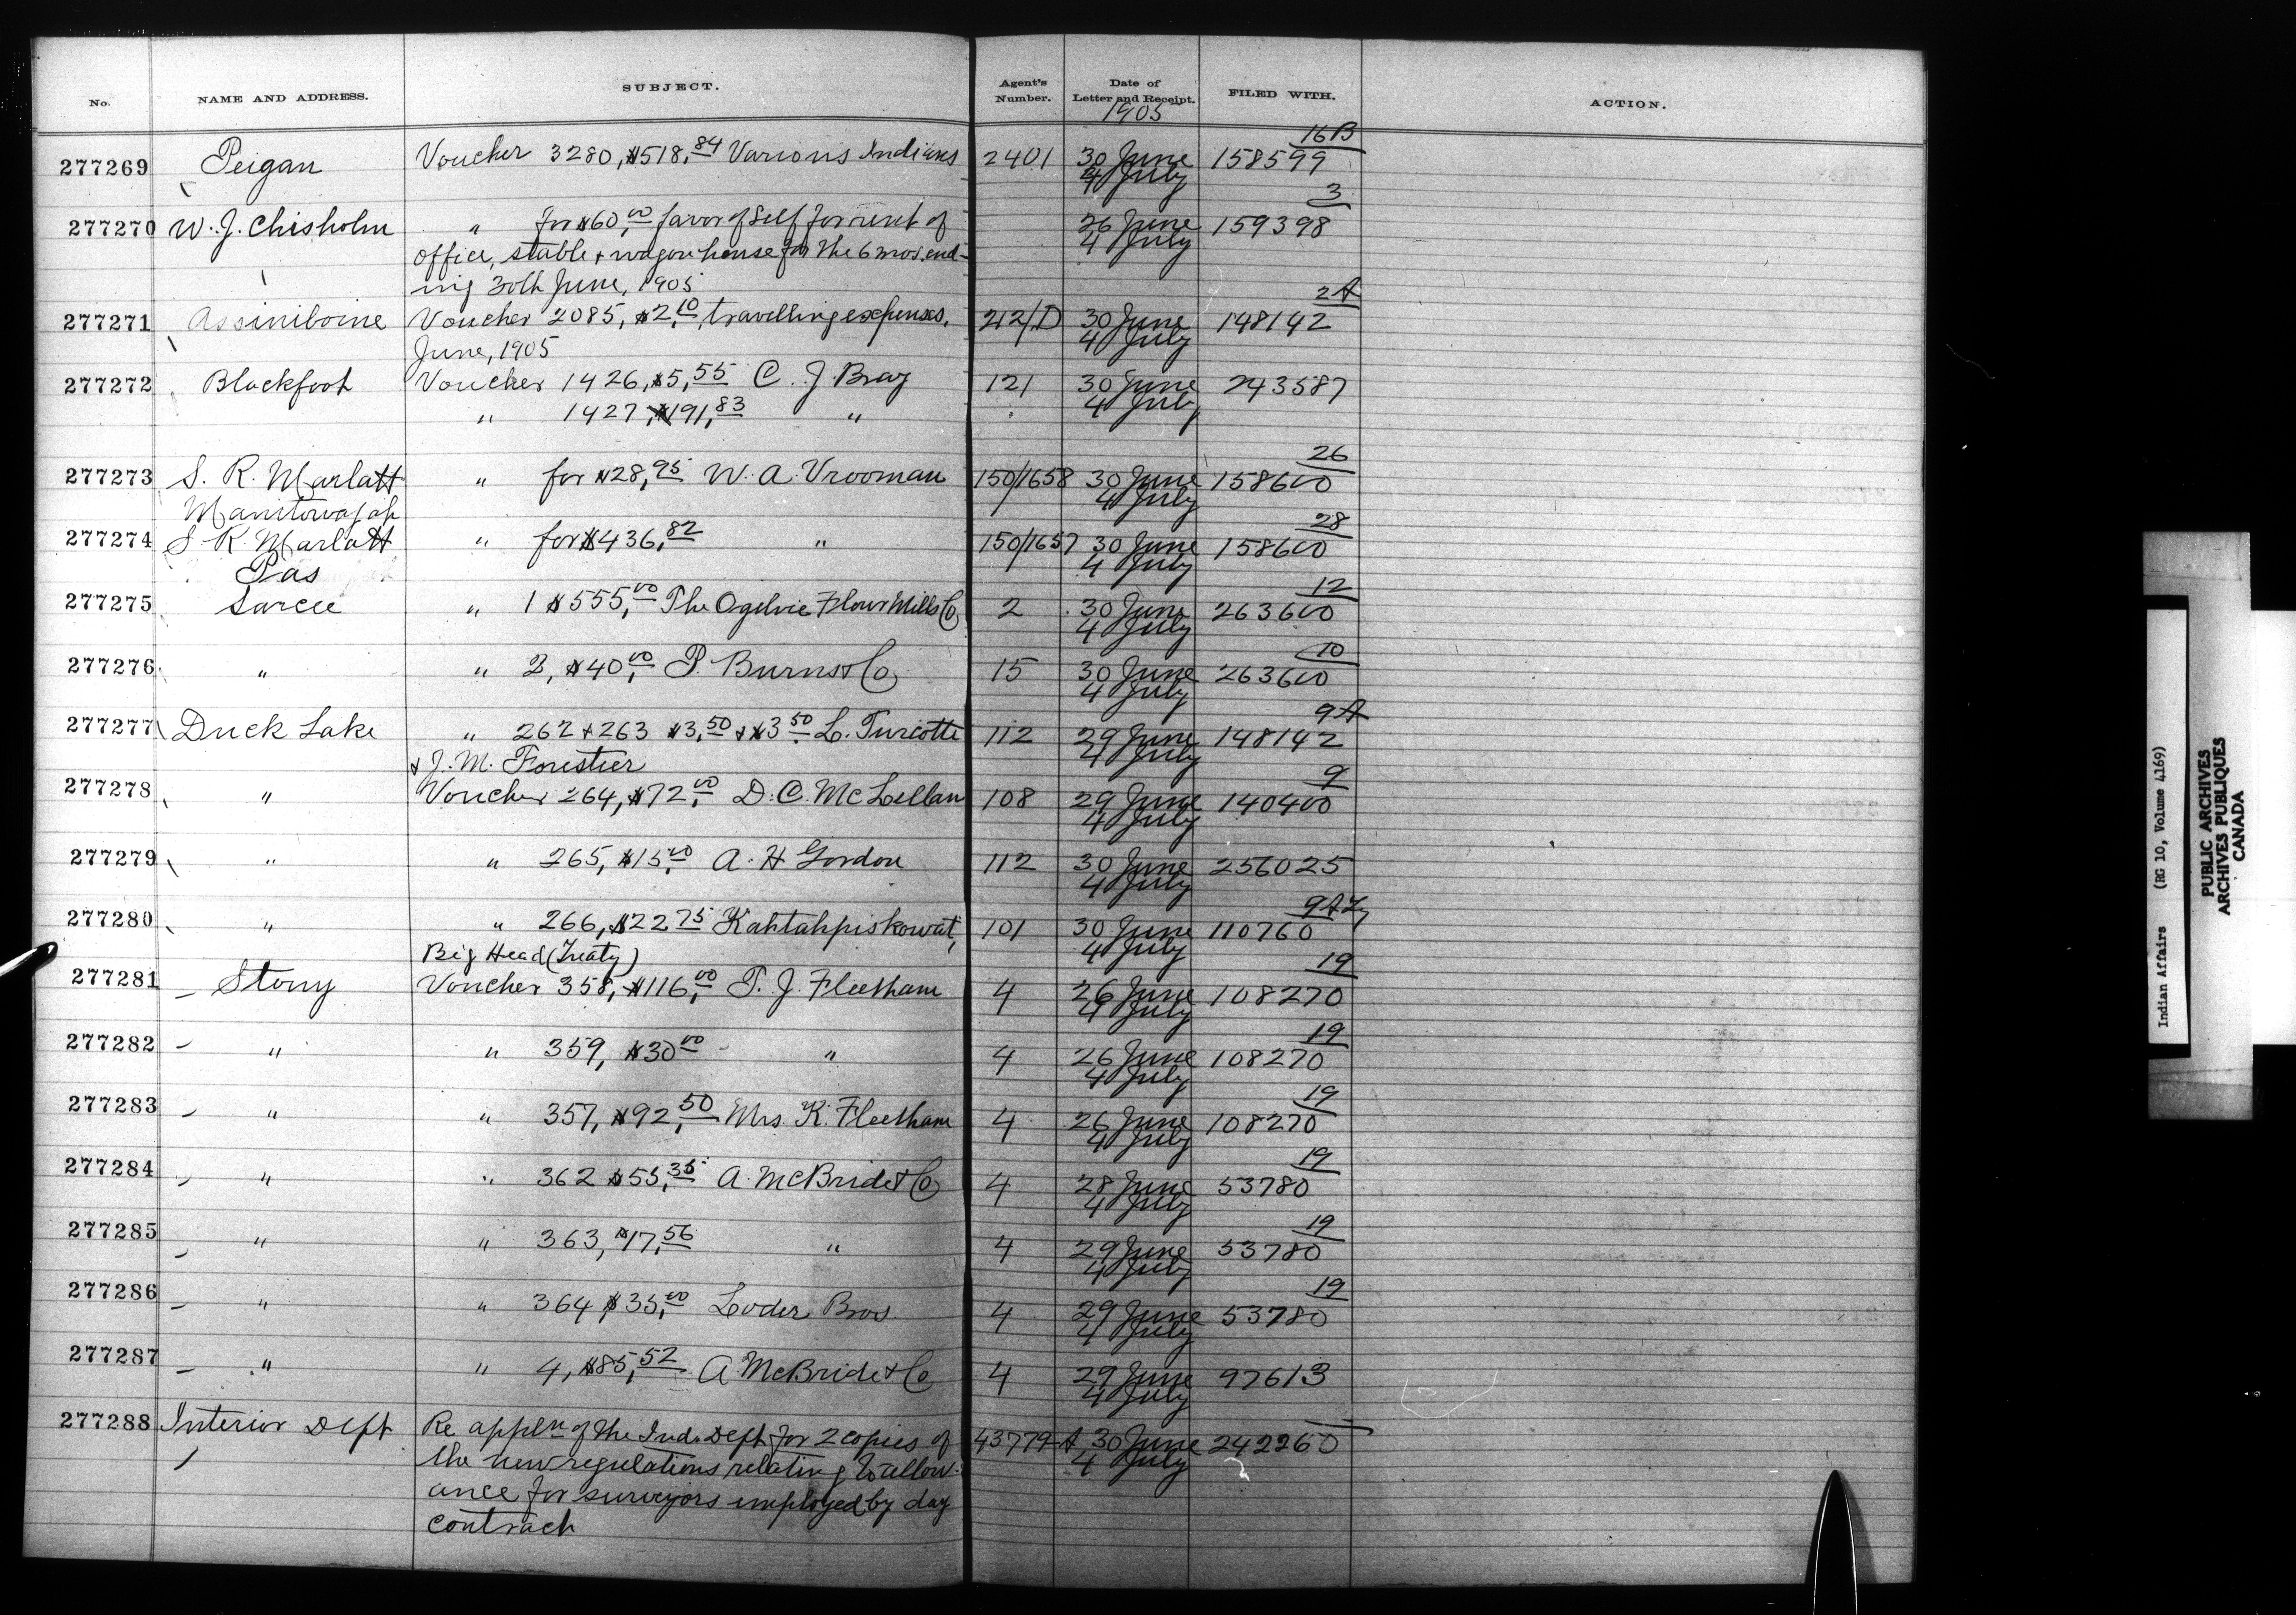 No. NAME AND ADDRESS. SUBJECT. Agent's Number. Date of Letter and Receipt. FILED WITH. ACTION.
1905
16B
277269 Peigan Voucher 3280, $518,84 Various Indians 2401 30 June 158599
4 July
3
277270 W. J. Chisholm " for $60,00 favor of Self for rent of 26 June 159398
office, stable & wagon house for the 6 mos. end- 4 July
ing 30th June, 1905
2A
277271 Assiniboine Voucher 2085, $2,10, travelling expenses, 212/D 30 June 148142
June, 1905 4 July
277272 Blackfoot Voucher 1426, $5,55 C. J. Bray 121 30 June 243587
" 1427, $191,83 " 4 July
26
277273 S. R. Marlatt " for $28,95 W. A. Vrooman 150/1658 30 June 158600
Manitowapah 4 July
28
277274 S. R. Marlatt " for $436,82 " 150/1657 30 June 158600
Pas 4 July
12
277275 Sarcee " 1 $555,00 The Ogilvie Flour Mills Co 2 30 June 263600
4 July
10
277276 " " 2, $40,00 P. Burns & Co 15 30 June 263600
4 July
9A
277277 Duck Lake " 262 & 263 $3,50 & $3.50 L. Turcotte 112 29 June 148142
& J. M. Forestier 4 July
9
277278 " Voucher 264, $72,00 D. C. McLellan 108 29 June 140400
4 July
277279 " " 265, $15,00 A. H Gordon 112 30 June 256025
4 July
277280 " " 266, $22 75 Kahtahpiskowat, 101 30 June 110760
Big Head (Treaty) 4 July
19
277281 Stony Voucher 358, $116,00 T. J. Fleetham 4 26 June 108270
4 July
19
277282 " " 359, $30 00 " 4 26 June 108270
4 July
19
277283 " " 357, $92,50 Mrs. K. Fleetham 4 26 June 108270
4 July
19
277284 " " 362 $55,35 A. McBride & Co 4 28 June 53780
4 July
19
277285 " " 363, $17,56 " 4 29 June 53780
4 July
19
277286 " " 364 $35,00 Loder Bros. 4 29 June 53780
4 July
277287 " " 4, $85,52 A McBride & Co 4 29 June 97613
4 July
277288 Interior Dept Re appln of the Ind. Dept for 2 copies of 43779-A 30 June 242260
the new regulations relating to allow- 4 July
ance for surveyors employed by day
contract
Indian Affairs (RG 10, Volume 4169)
PUBLIC ARCHIVES
ARCHIVES PUBLIQUES
CANADA